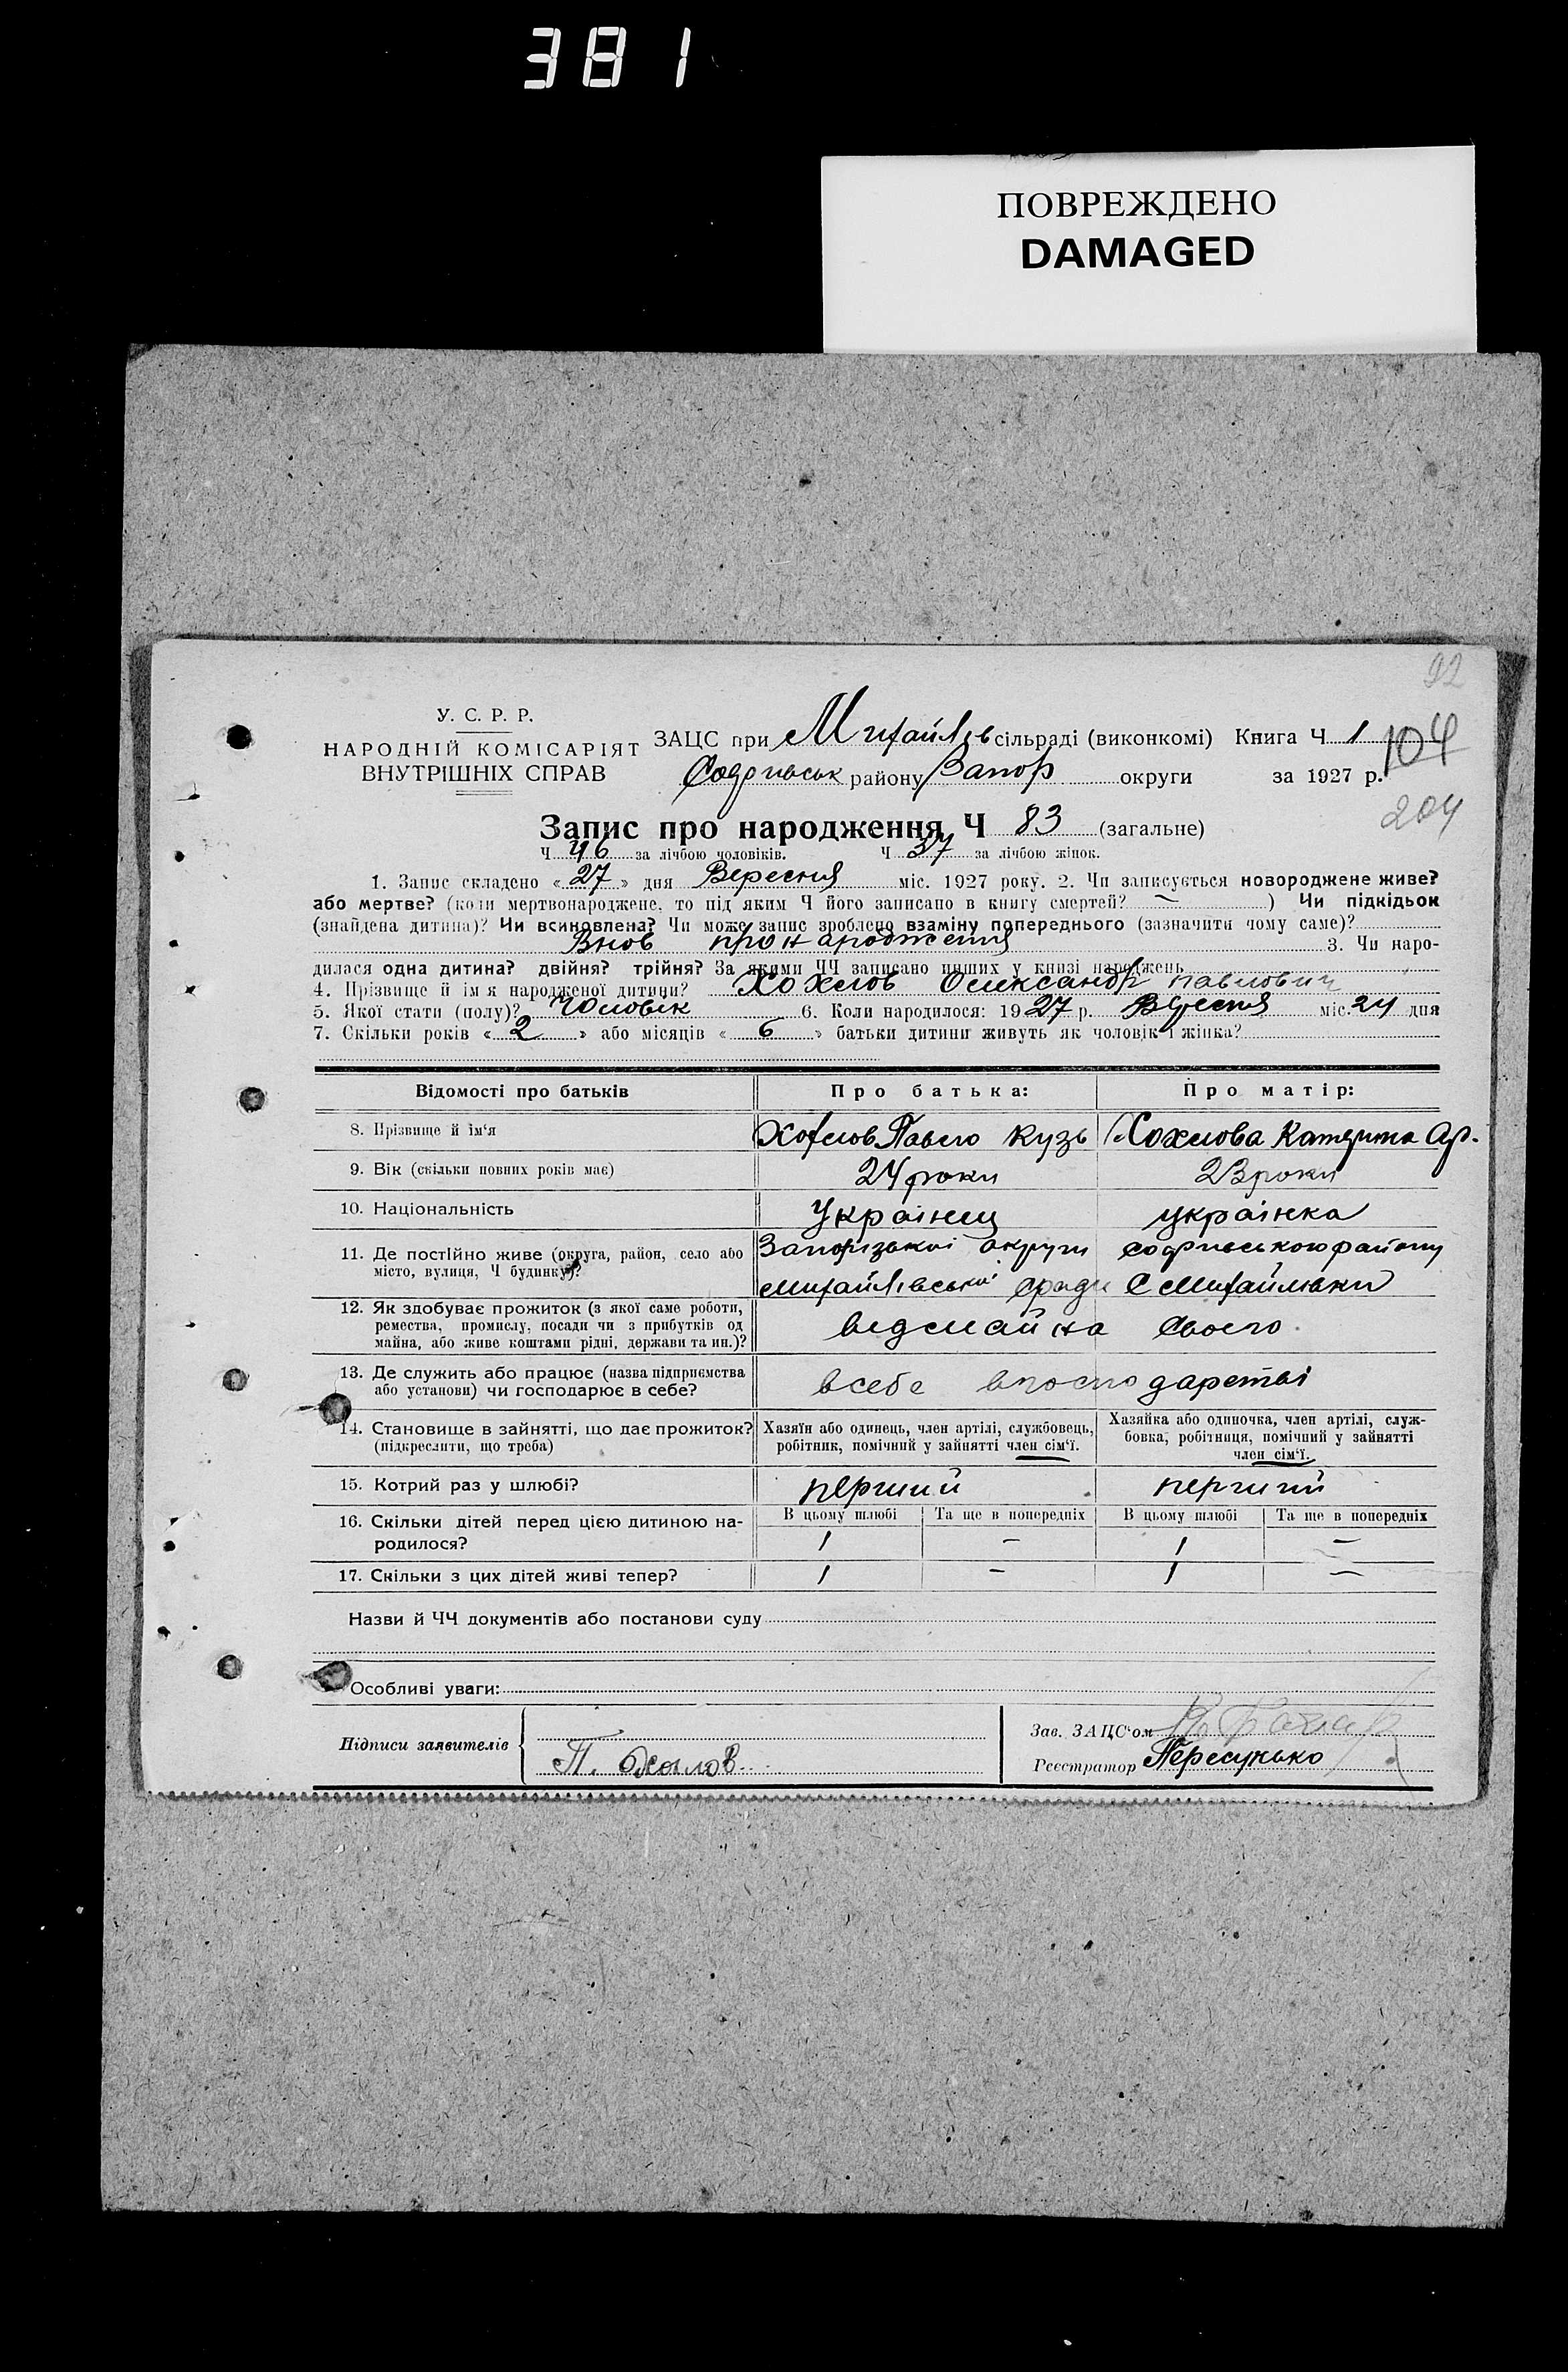 381
ПОВРЕЖДЕНО
DAMAGED
92
У. С. Р. Р.
НАРОДНІЙ КОМІСАРІЯТ
ВНУТРІШНІХ СПРАВ
ЗАЦС при Михайлів сільраді (виконкомі) Книга Ч 1
104
Софіївськ району Запор округи за 1927 р.
204
Запис про народження Ч 83 (загальне)
Ч 46 за лічбою чоловіків. Ч 37 за лічбою жінок.
1. Запис складено «27» дня Вересня міс. 1927 року. 2. Чи записується новороджене живе?
або мертве? (коли мертвонароджене, то під яким Ч його записано в книгу смертей? — ) Чи підкідьок
(знайдена дитина)? Чи всиновлена? Чи може запис зроблено взаміну попереднього (зазначити чому саме)?
Внов про народження 3. Чи наро-
дилася одна дитина? двійня? трійня? За якими ЧЧ записано инших у книзі народжень
4. Прізвище й ім'я народженої дитини? Хохлов Олександр Павлович
5. Якої стати (полу)? Чоловік 6. Коли народилося: 1927 р. Вересня міс. 24 дня
7. Скільки років «2» або місяців «6» батьки дитини живуть як чоловік і жінка?
Відомості про батьків Про батька: Про матір:
8. Прізвище й ім'я Хохлов Павло Кузь Хохлова Катерина Ар.
9. Вік (скільки повних років має) 24 роки 23 роки
10. Національність Українец українка
11. Де постійно живе (округа, район, село або Запорізької округи софиевського району
місто, вулиця, Ч будинку)? михайлівської С Михайлівки
12. Як здобуває прожиток (з якої саме роботи,
ремества, промислу, посади чи з прибутків од
майна, або живе коштами рідні, держави та ин.)? від майна своего
13. Де служить або працює (назва підприємства
або установи) чи господарює в себе? всебе в господарстві
14. Становище в зайнятті, що дає прожиток? Хазяїн або одинець, член артілі, службовець, Хазяйка або одиночка, член артілі, служ-
(підкреслити, що треба) робітник, помічний у зайнятті член сім'ї. бовка, робітниця, помічний у зайнятті
член сім'ї.
15. Котрий раз у шлюбі? перший перший
16. Скільки дітей перед цією дитиною на- В цьому шлюбі Та ще в попередніх В цьому шлюбі Та ще в попередніх
родилося? 1 — 1 —
17. Скільки з цих дітей живі тепер? 1 — 1 —
Назви й ЧЧ документів або постанови суду
Особливі уваги:
Зав. ЗАЦС'ом
Підписи заявителів П. Хохлов
Реєстратор Пересунько